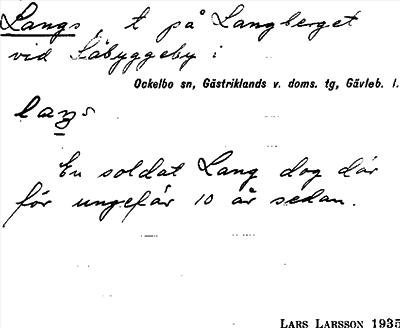 Langs, t på Langberget
vid Såbyggeby:
Ockelbo sn, Gästriklands v. doms. tg, Gävleb. l.
laŋs
En soldat Lang dog där
för ungefär 10 år sedan.
LARS LARSSON 1935